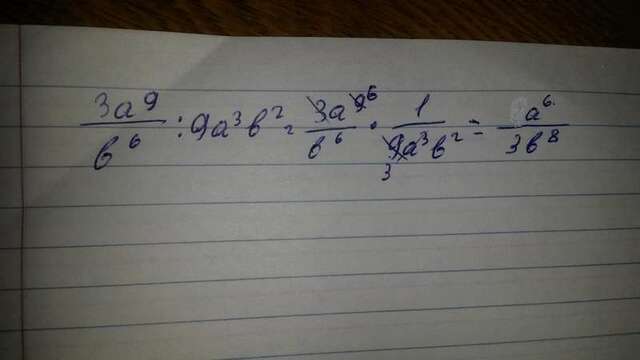 3a⁹/b⁶ : 9a³b² = 3a⁹ ⁶/b⁶ · 1/9a³b² 3 = a⁶/3b⁸